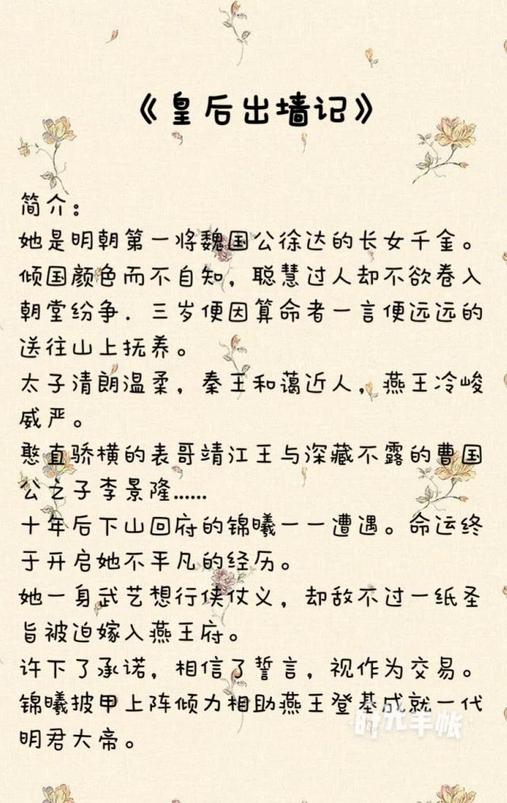 《皇后出墙记》
简介：
她是明朝第一将魏国公徐达的长女千金。
倾国颜色而不自知，聪慧过人却不欲卷入
朝堂纷争．三岁便因算命者一言便远远的
送往山上抚养。
太子清朗温柔，秦王和蔼近人，燕王冷峻
威严。
憨直骄横的表哥靖江王与深藏不露的曹国
公之子李景隆......
十年后下山回府的锦曦一一遭遇。命运终
于开启她不平凡的经历。
她一身武艺想行侠仗义，却敌不过一纸圣
旨被迫嫁入燕王府。
许下了承诺，相信了誓言，视作为交易。
锦曦披甲上阵倾力相助燕王登基成就一代
明君大帝。
时光手帐